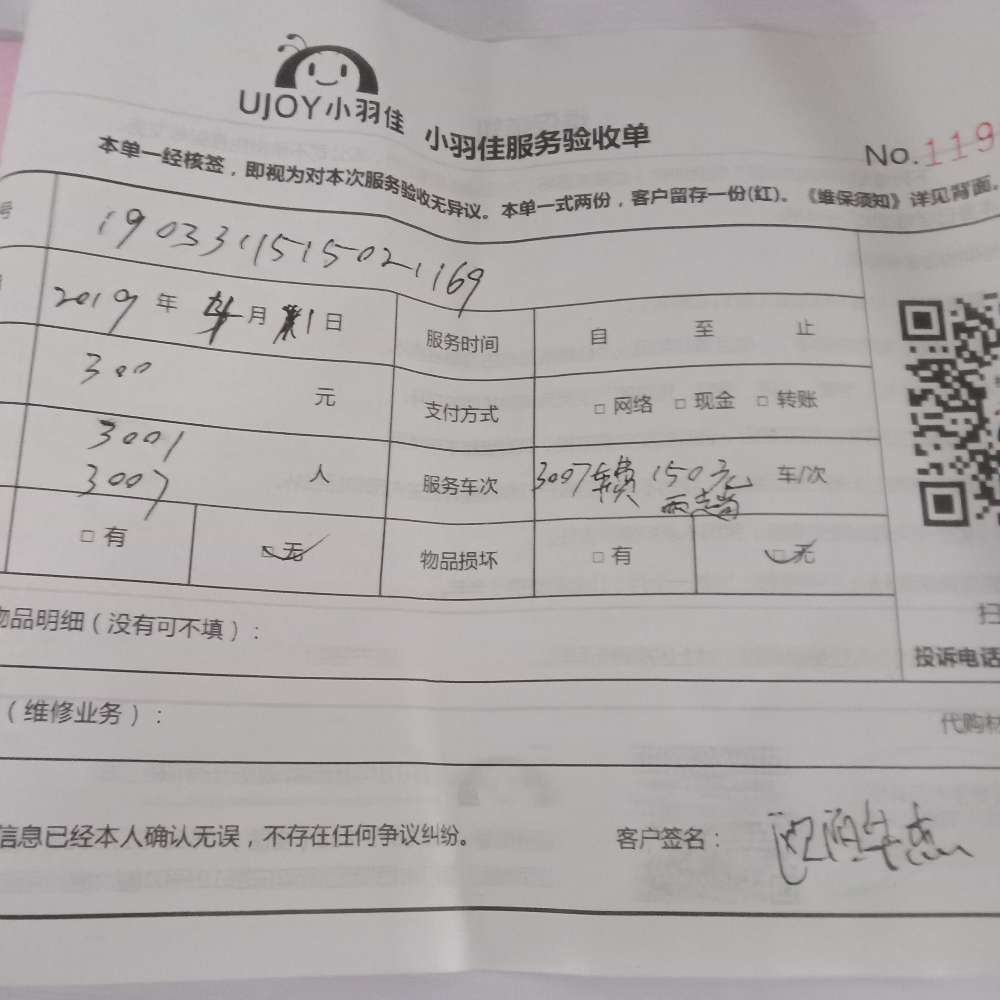 UJOY小羽佳
小羽佳服务验收单
No.119
本单一经核签，即视为对本次服务验收无异议。本单一式两份，客户留存一份(红)。《维保须知》详见背面。
号 1903311515021169
2019年 月 1日 服务时间 自 至 止
300 元 支付方式 □网络 □现金 □转账
3001
3007 人 服务车次 3007车费150元 两趟 车/次
□有 □无 物品损坏 □有 □无
物品明细（没有可不填）：
扫
投诉电话
（维修业务）： 代购材
信息已经本人确认无误，不存在任何争议纠纷。 客户签名：